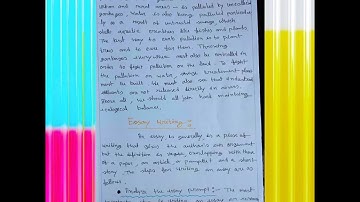 urban and rural areas - is polluted by uncontrolled
garbages, Water is also being polluted particularly
as a result of untreated sewage, which
kills aquatic creatures like fishes and plants.
The best way to curb pollution is to plant
trees and to care for them. Throwing
garbages everywhere must also be controlled in
order to fight pollution on the land. To fight
the pollution on water, sewage treatment plants
must be built. We must also see that industrial
effluents are not released directly in rivers.
Above all, we should all join hands maintaining
ecological balance.
Essay Writing :-
An essay is generally is a piece of
writing that gives the author's own argument
but the definition is vague, overlapping with those
of a paper, an article, a pamphlet and a short
story. The steps for writing an essay are as
follows.
Analyze the essay prompt :- The most